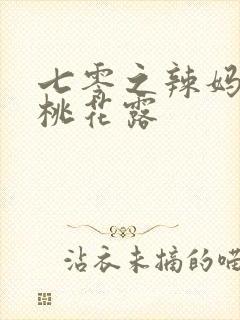 七零之辣妈
桃花露
沾衣未摘的喵